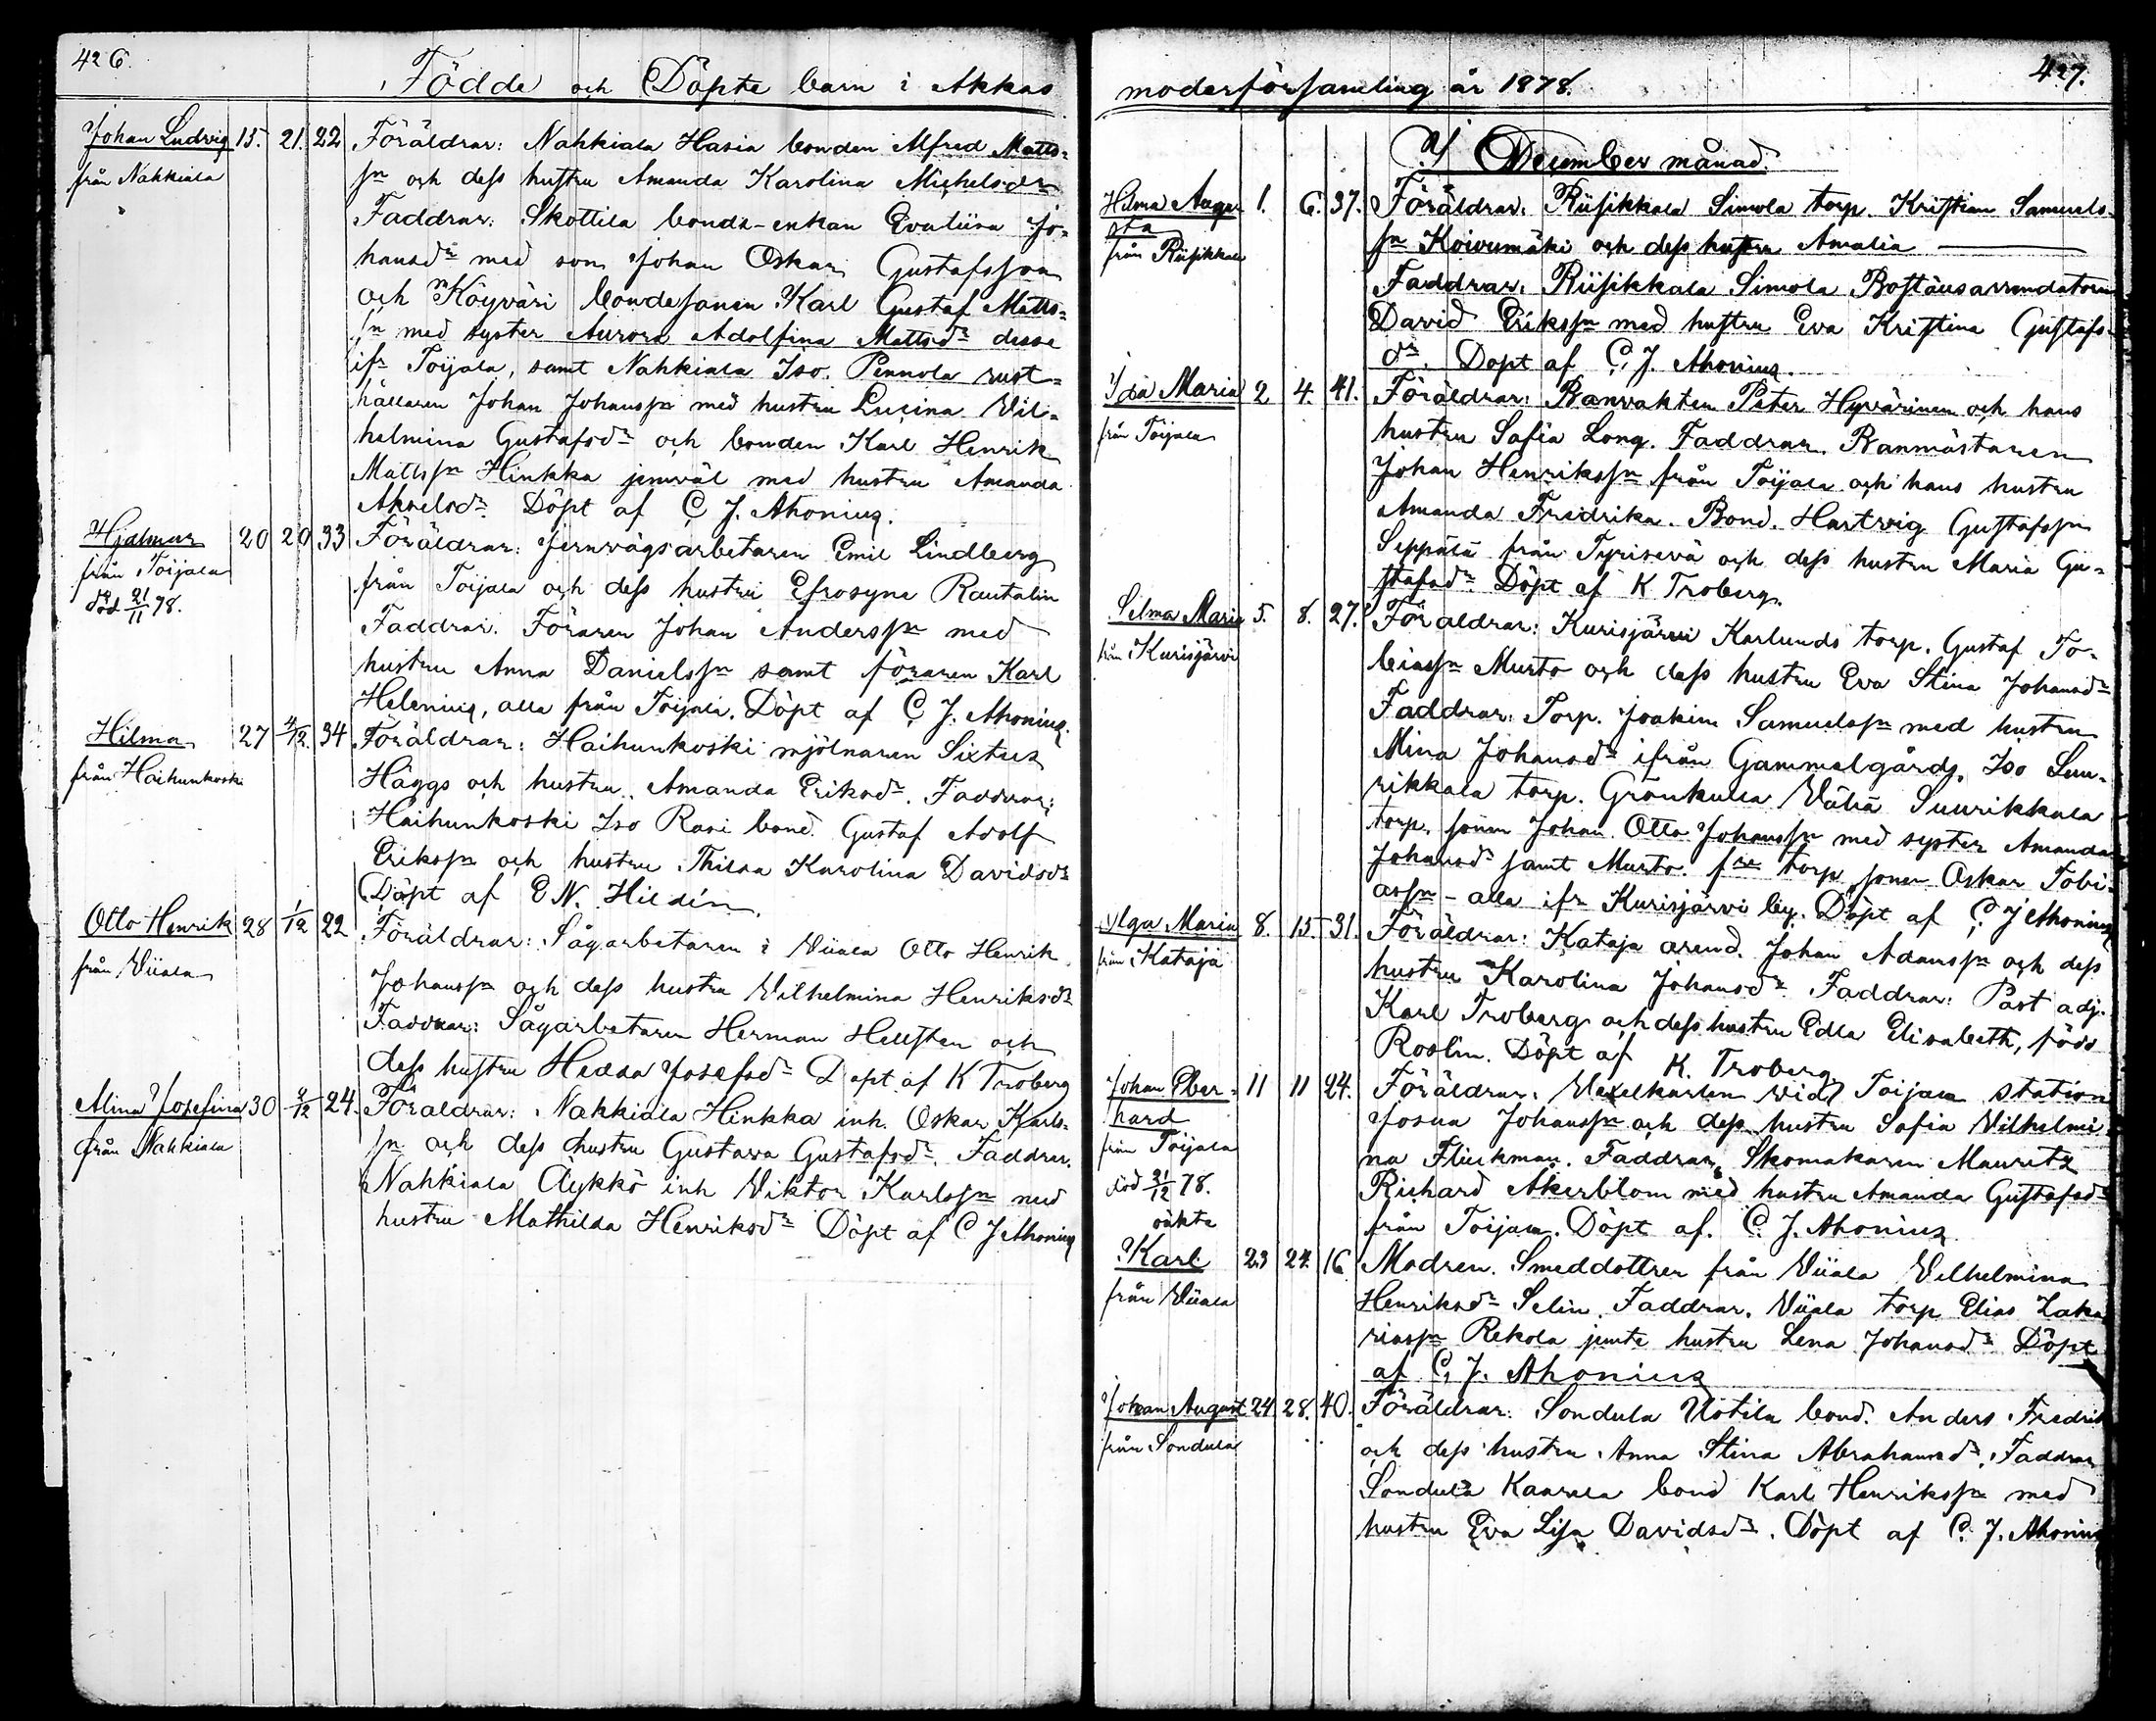 426.
Födde och Döpte barn i Akkas
Johan Ludvig 15. 21. 22 Föräldrar: Nahkiala Hasia bonden Alfred Matts-
från Nahkiala
sn och dess hustru Amanda Karolina Michelsdr
Faddrar: Skottila bonde-enkan Evaliisa Jo-
hansdr med son Johan Oskar Gustafsson
och Köyväri bondesonen Karl Gustaf Matts-
sn med syster Aurora Adolfina Mattsdr desse
ifr Toijala, samt Nahkiala Iso Pennola rust-
hållaren Johan Johanssn med hustru Lucina Vil-
helmina Gustafsdr och bonden Karl Henrik
Mattssn Hinkka jemväl med hustru Amanda
Akselsdr. Döpt af C J. Ahonius.
Hjalmar 20 29 33 Föräldrar: Jernvägsarbetaren Emil Lindberg
från Toijala
död 21/11 78.
från Toijala och dess hustru Efrosyne Rautalin
Faddrar. Föraren Johan Anderssn med
hustru Anna Danielssn samt föraren Karl
Helenius, alla från Toijala. Döpt af C J. Ahonius.
Hilma 27 4/12. 34 Föräldrar: Haihunkoski mjölnaren Sixtus
från Haihunkoski
Häggs och hustru Amanda Eriksdr. Faddrar:
Haihunkoski Iso Rasi bond. Gustaf Adolf
Erikssn och hustru Thilda Karolina Davidsdr
Döpt af E N. Hildén.
Otto Henrik 28 1/12 22 Föräldrar: Sågarbetaren i Viiala Otto Henrik
från Viiala
Johanssn och dess hustru Vilhelmina Henriksdr
Faddrar: Sågarbetaren Herman Hellsten och
dess hustru Hedda Josefsdr Döpt af K Troberg
Alina Josefina 30 8/12 24. Föräldrar: Nahkiala Hinkka inh. Oskar Karls-
från Nahkiala
sn och dess hustru Gustava Gustafsdr. Faddrar.
Nahkiala Äykkö inh Viktor Karlssn med
hustru Mathilda Henriksdr Döpt af C J Ahonius
427.
moderförsamling år 1878.
I December månad.
Hilma Augu- 1. 6. 37. Föräldrar: Riisikkala Simola torp. Kristian Samuels-
sta
från Riisikkala
sn Koivumäki och dess hustru Amalia
Faddrar: Riisikkala Simola Bostäusarrendatorn
David Erikssn med hustru Eva Kristina Gustafs-
dr. Döpt af C. J. Ahonius.
Ida Maria 2 4. 41. Föräldrar: Banvakten Peter Hyvärinen och hans
från Toijala
hustru Safia Long. Faddrar. Banmästaren
Johan Henrikssn från Toijala och hans hustru
Amanda Fredrika. Bond. Hartvig Gustafssn
Seppälä från Tyrisevä och dess hustru Maria Gu-
stafsdr. Döpt af K Troberg.
Selma Maria 5. 8. 27. Föräldrar: Kurisjärvi Karlunds torp. Gustaf To-
från Kurisjärvi
biassn Murto och dess hustru Eva Stina Johansdr
Faddrar: Torp. Joakim Samuelssn med hustru
Mina Johansdr ifrån Gammelgårds, Iso Suu-
rikkala torp. Grönkulla Vähä Suurikkala
torp. sonen Johan Otto Johanssn med syster Amanda
Johansdr samt Murto torp sonen Oskar Tobi-
assn - alla ifr Kurisjärvi by. Döpt af C. J Ahonius
Olga Maria 8. 15. 31. Föräldrar: Kataja arend. Johan Adamssn och dess
från Kataja
hustru Karolina Johansdr. Faddrar: Past adj.
Karl Troberg och dess hustru Edla Elisabeth, född
Roslin. Döpt af K. Troberg
Johan Eber- 11 11 24. Föräldrar. Vexelkarlen vid Toijala station
hard
från Toijala
död 21/12 78.
Josua Johanssn och dess hustru Sofia Vilhelmi-
na Flinkman. Faddrar, Skomakaren Mauritz
Richard Åkerblom med hustru Amanda Gustafsdr
från Toijala. Döpt af. C. J. Ahonius
oäkta
Karl 23 24. 16 Modren. Smeddottren från Viiala Vilhelmina
från Viiala
Henriksdr Selin. Faddrar. Viiala torp Elias Zaka-
riassn Rekola jemte hustru Lena Johansdr Döpt
af C. J. Ahonius
Johan August 24 28. 40. Föräldrar: Sondula Uotila bond. Anders Fredrik
från Sondula
och dess hustru Anna Stina Abrahamsdr. Faddrar
Sondula Kaarela bond Karl Henrikssn med
hustru Eva Lisa Davidsdr. Döpt af C. J. Ahonius